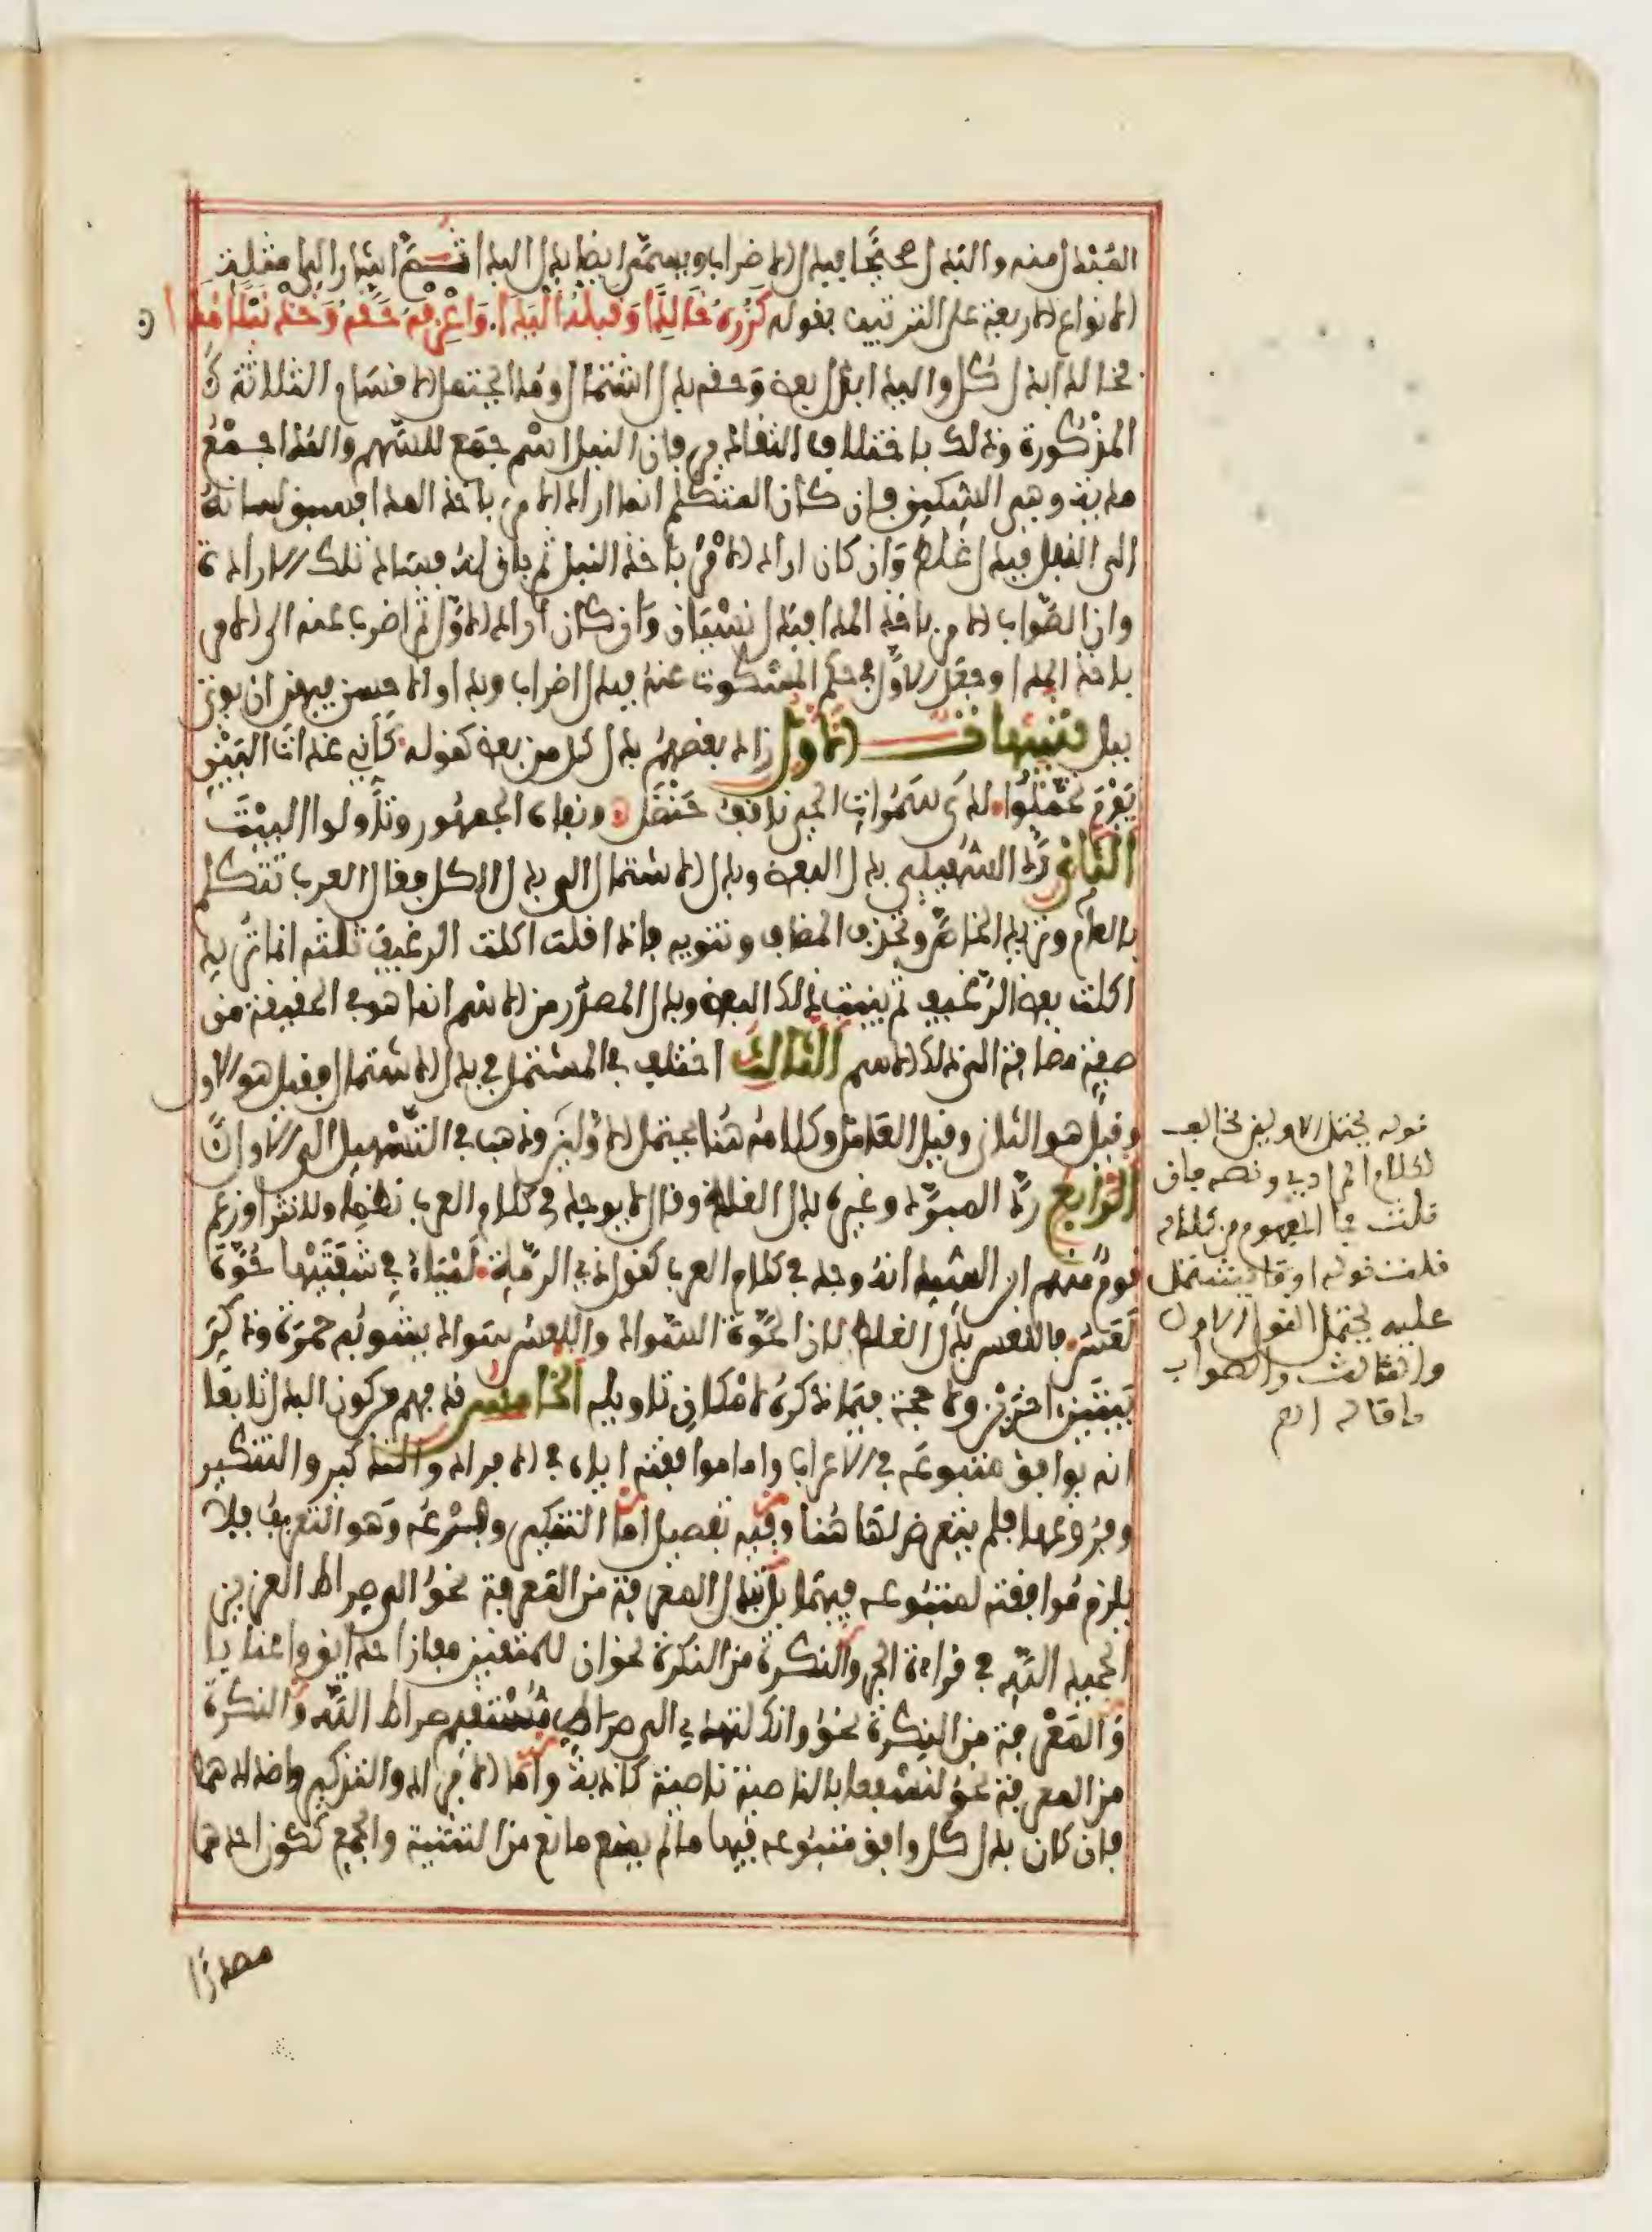 المبدل منه والبدل صحيحا فبدل الاضراب ويسمى ايضا بدل البدا ثم اشار الى امثلة
الانواع الاربعة على الترتيب بقوله كزره خالدا وقبله اليدا واعرفه حقه وخذ نبلا مدا
فخالدا بدل كل واليدا بدل بعض وحقه بدل اشتمال ومدا يحتمل الاقسام الثلاثة
المذكورة وذلك باختلاف التقادير فان النبل اسم جمع للسهم والمدا جمع
مدية وهي السكين فان كان المتكلم انما اراد الامر باخذ المدا فسبق لسانه
الى النبل فبدل غلط وان كان اراد الامر باخذ النبل ثم بان له فساد تلك الارادة
وان الصواب الامر باخذ المدا فبدل نسيان وان كان اراد الاول ثم اضرب عنه الى الامر
باخذ المدا وجعل الاول في حكم المسكوت عنه فبدل اضراب وبدا والاحسن فيهن ان يوتى
ببل تنبيهات الاول زاد بعضهم بدل كل من بعض كقوله كاني غداة البين
يوم تحملوا لدى سمرات الحي ناقف حنظل ونفاه الجمهور وتاولوا البيت
الثاني رد السهيلي بدل البعض وبدل الاشتمال الى بدل الكل فقال العرب تتكلم
بالعام وتريد الخاص وتحذف المضاف وتنويه فاذا قلت اكلت الرغيف ثلثه انما تريد
اكلت بعض الرغيف ثم بينت ذلك البعض وبدل المصدر من الاسم انما هو في الحقيقة من
صفة مضافة الى ذلك الاسم الثالث اختلف في المشتمل في بدل الاشتمال فقيل هو الاول
وقيل هو الثاني وقيل العامل وكلامه هنا يحتمل الاولين وذهب في التسهيل الى الاول
الرابع رد المبرد وغيره بدل الغلط وقال لا يوجد في كلام العرب نظما ولا نثرا وزعم
قوم منهم ابن السيد انه وجد في كلام العرب كقول ذي الرمة لمياء في شفتيها حوة
لعس فاللعس بدل الغلط لان الحوة السواد واللعس سواد يشوبه حمرة وذكر
بيتين اخرين ولا حجة فيما ذكره لامكان تاويله الخامس قد فهم من كون البدل تابعا
انه يوافق متبوعه في الاعراب واما موافقته اياه في الافراد والتذكير والتنكير
وفروعها فلم يتعرض لها هنا وفيه تفصيل اما التنكير وفرعه وهو التعريف فلا
يلزم موافقته لمتبوعه فيهما بل تبدل المعرفة من المعرفة نحو الى صراط العزيز
الحميد الله في قراءة الجر والنكرة من النكرة نحو ان للمتقين مفازا حدائق واعنابا
والمعرفة من النكرة نحو وانك لتهدي الى صراط مستقيم صراط الله والنكرة
من المعرفة نحو لنسفعا بالناصية ناصية كاذبة واما الافراد والتذكير واضدادهما
فان كان بدل كل وافق متبوعه فيها ما لم يمنع مانع من التثنية والجمع ككون احدهما
مصدرا
قوله يحتمل الاولين مخالف
لكلام المرادي ونصه فان
قلت فما المفهوم من كلامه
قلت قوله او ما يشتمل
عليه يحتمل القول الاول
والثالث والصواب
ما قاله اهـ